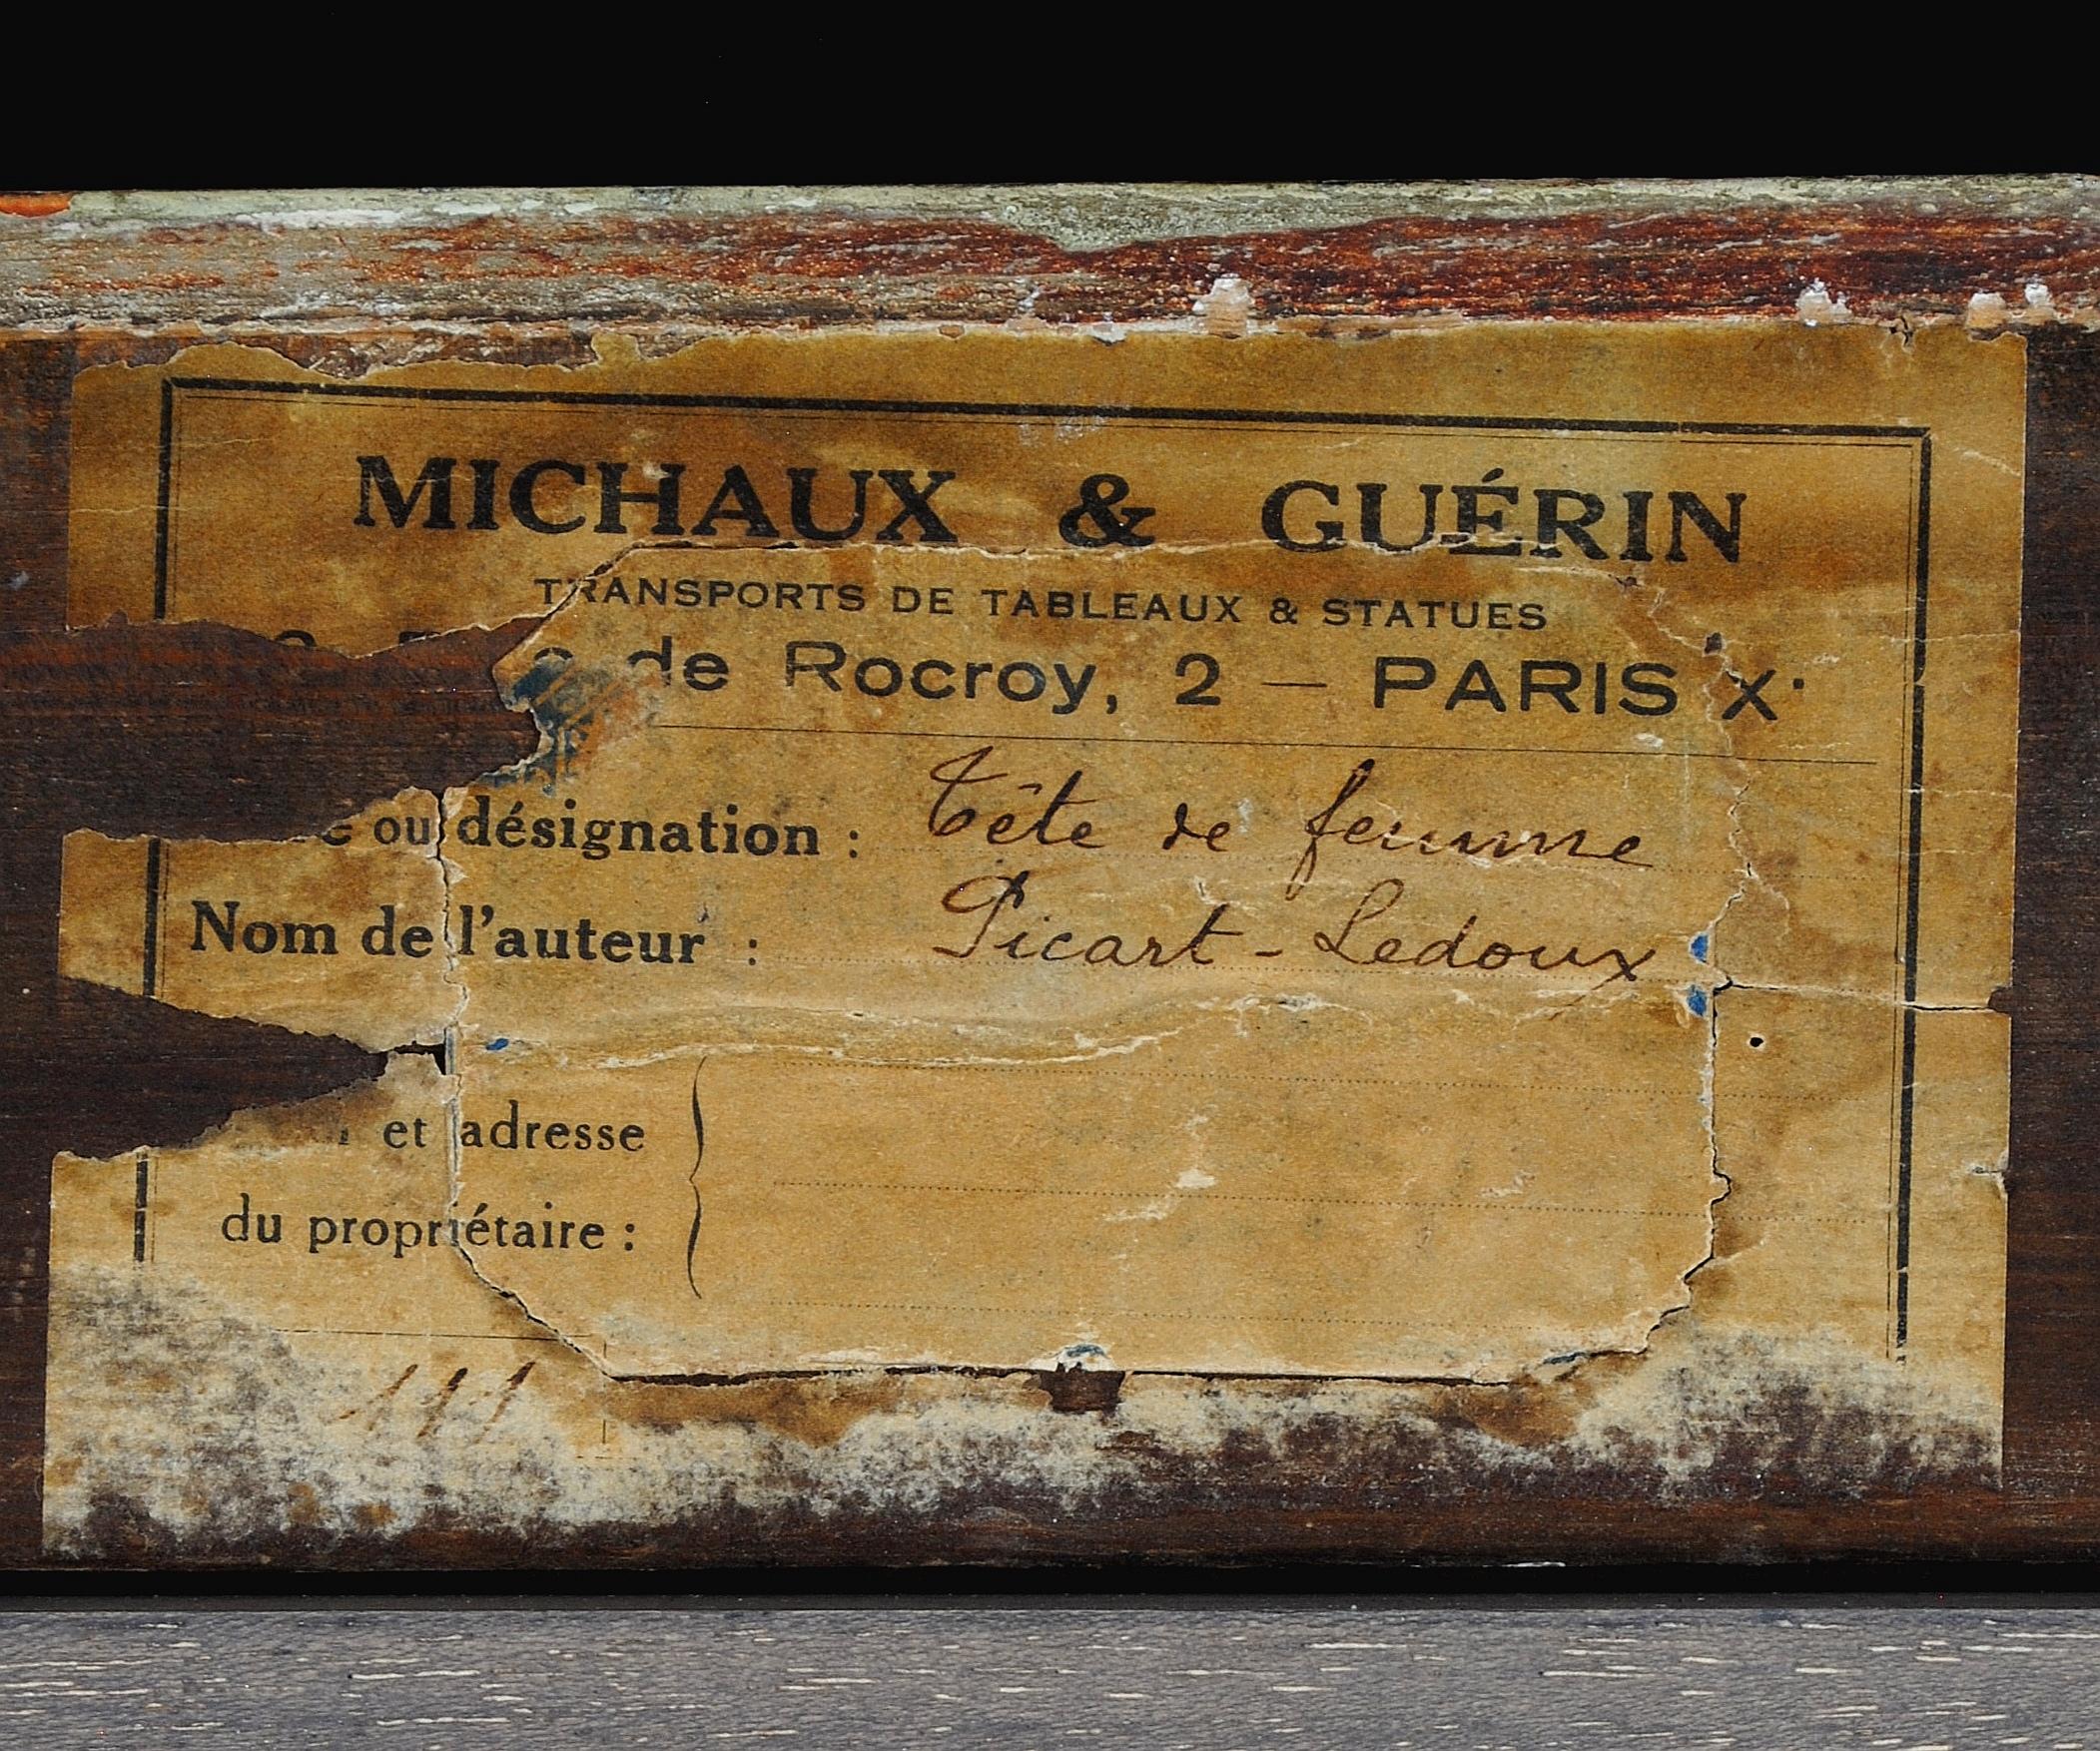 MICHAUX & GUÉRIN
TRANSPORTS DE TABLEAUX & STATUES
de Rocroy, 2 — PARIS X·
ou désignation : Tête de femme
Nom de l'auteur : Picart-Ledoux
et adresse
du propriétaire :
111